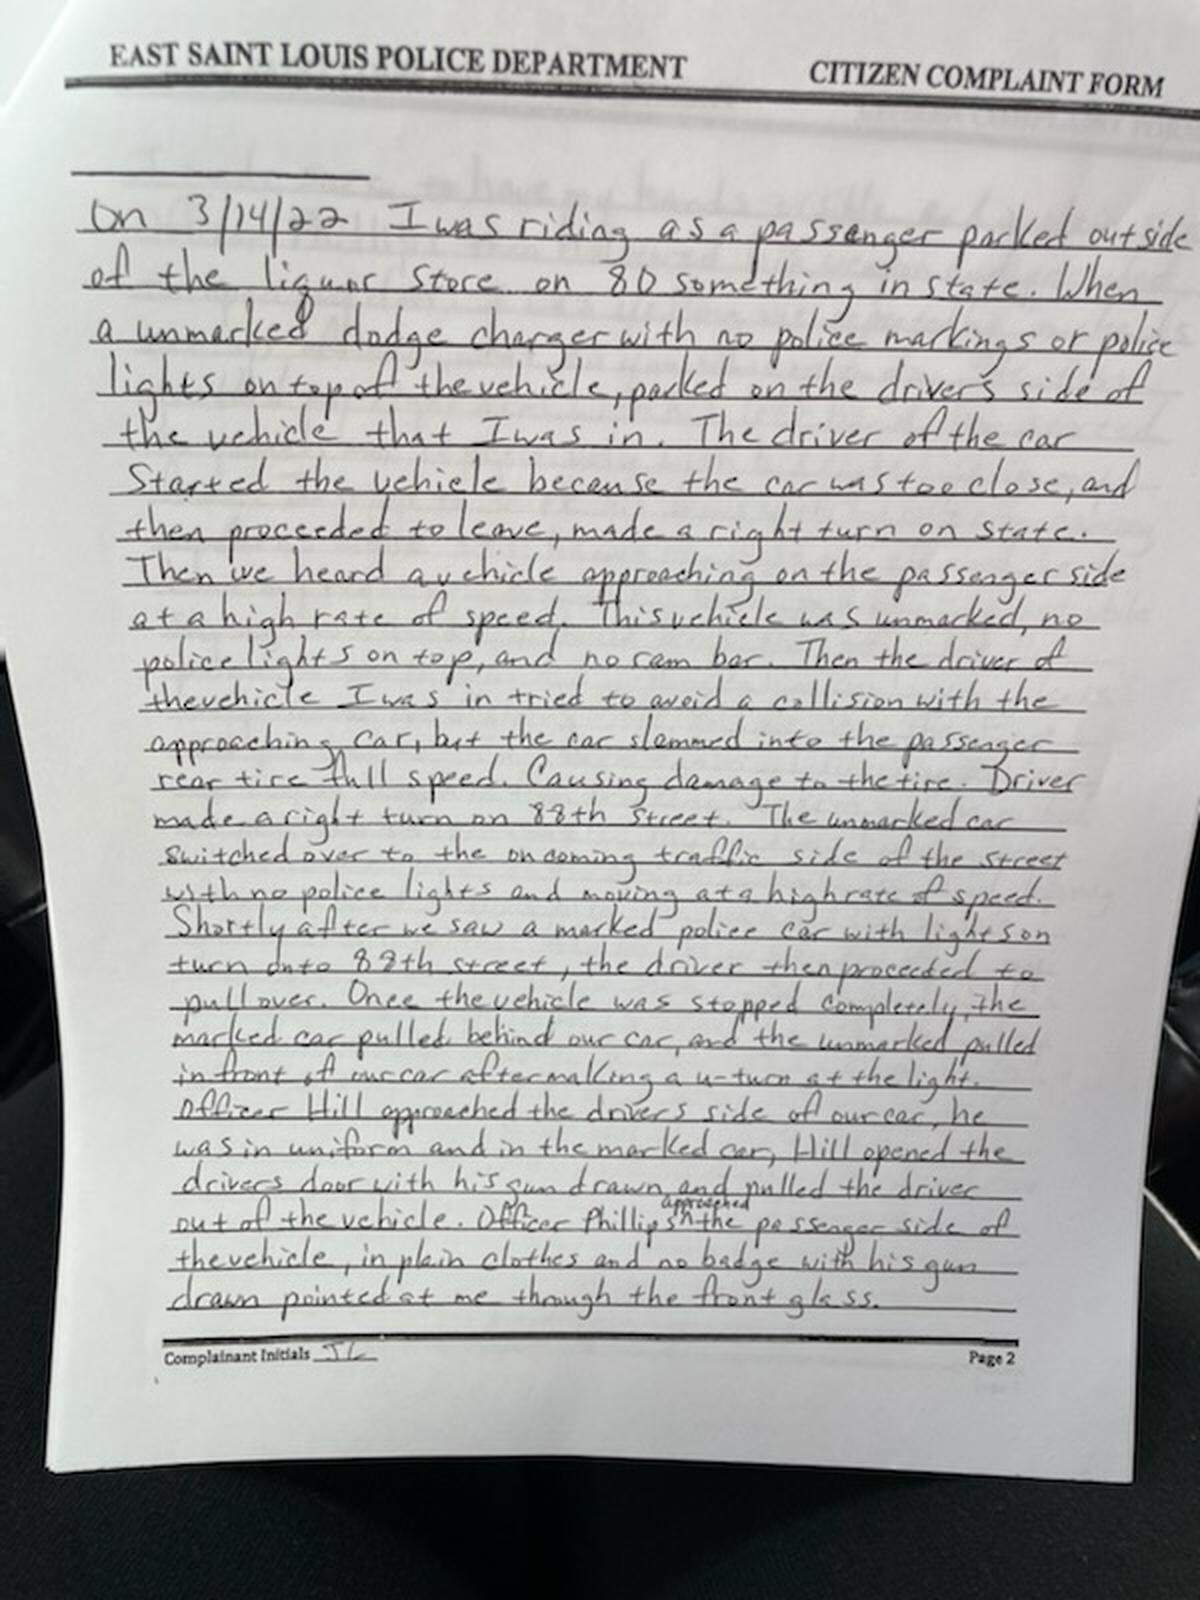 EAST SAINT LOUIS POLICE DEPARTMENT CITIZEN COMPLAINT FORM
On 3/14/22 I was riding as a passenger parked outside
of the liquor store on 80 something in state. When
a unmarked dodge charger with no police markings or police
lights on top of the vehicle, parked on the drivers side of
the vehicle that I was in. The driver of the car
Started the vehicle because the car was too close, and
then proceeded to leave, made a right turn on state.
Then we heard a vehicle approaching on the passenger side
at a high rate of speed. This vehicle was unmarked, no
police lights on top, and no ram bar. Then the driver of
the vehicle I was in tried to avoid a collision with the
approaching car, but the car slammed into the passenger
rear tire full speed. Causing damage to the tire. Driver
made a right turn on 88th street. The unmarked car
switched over to the oncoming traffic side of the street
with no police lights and moving at a high rate of speed.
Shortly after we saw a marked police car with lights on
turn onto 88th street, the driver then proceeded to
pull over. Once the vehicle was stopped completely, the
marked car pulled behind our car, and the unmarked pulled
in front of our car after making a u-turn at the light.
Officer Hill approached the drivers side of our car, he
was in uniform and in the marked car, Hill opened the
drivers door with his gun drawn and pulled the driver
out of the vehicle. Officer Phillips approached the passenger side of
the vehicle, in plain clothes and no badge with his gun
drawn pointed at me through the front glass.
Complainant Initials JL Page 2